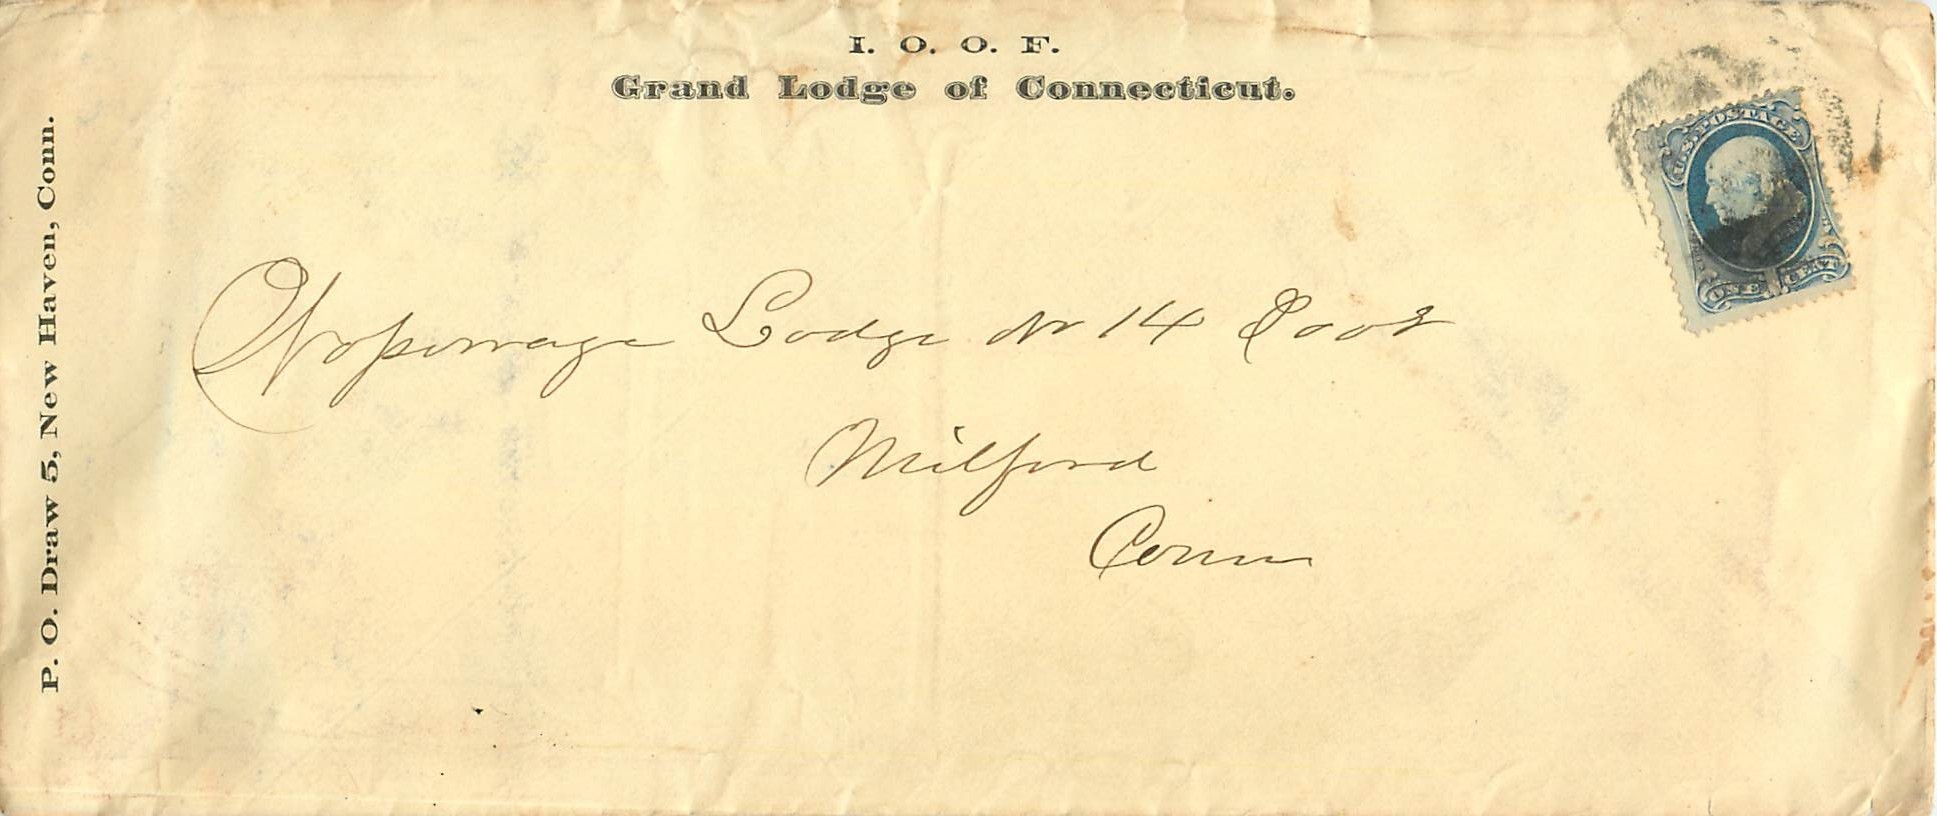 I. O. O. F.
Grand Lodge of Connecticut.
P. O. Draw 5, New Haven, Conn.
U.S. POSTAGE
ONE CENT
Wopowage Lodge No 14 Ioof
Milford
Conn